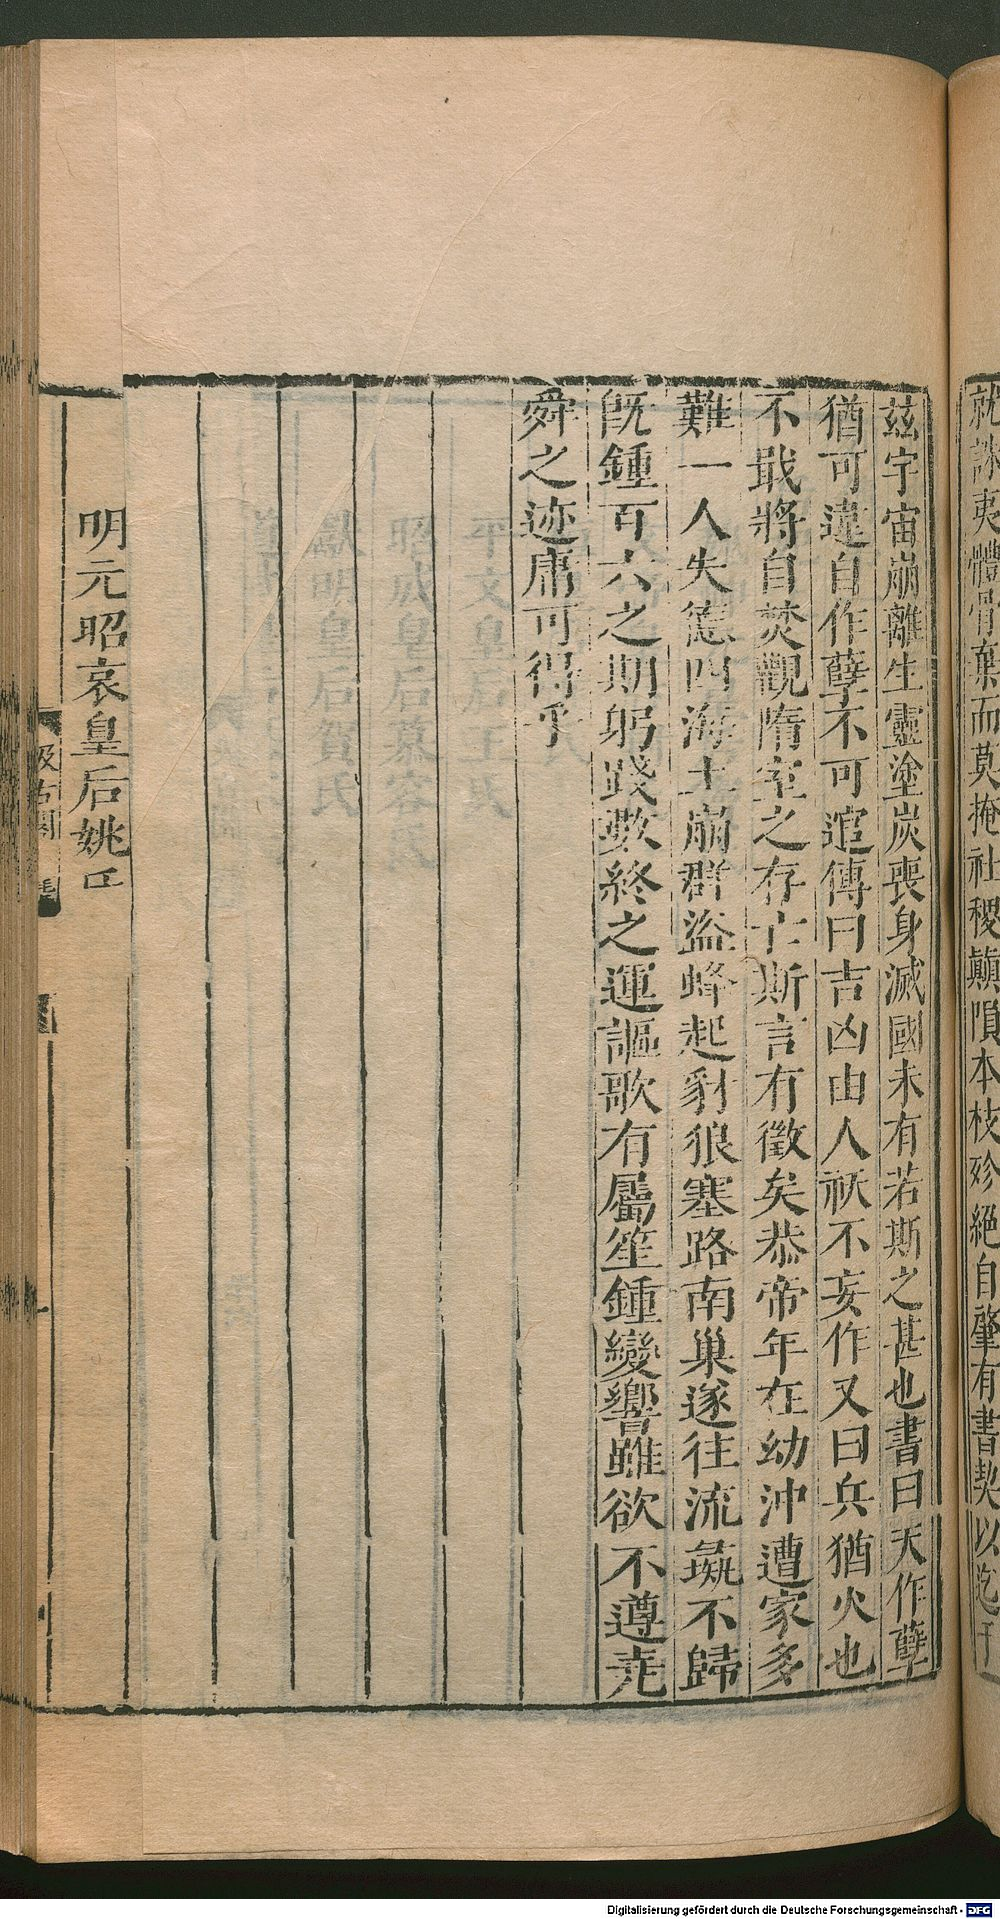 就誅夷體骨棄而莫掩社稷顛隕本枝殄絕自肇有書契以迄于
茲宇宙崩離生靈塗炭喪身滅國未有若斯之甚也書曰天作孽
猶可違自作孽不可逭傳曰吉凶由人祅不妄作又曰兵猶火也
不戢將自焚觀隋室之存亡斯言有徵矣恭帝年在幼沖遭家多
難一人失德四海土崩群盜蜂起豺狼塞路南巢遂往流彘不歸
旣鍾百六之期躬踐數終之運謳歌有屬笙鍾變響雖欲不遵堯
舜之迹庸可得乎
明元昭哀皇后姚
汲古閣
Digitalisierung gefördert durch die Deutsche Forschungsgemeinschaft - DFG